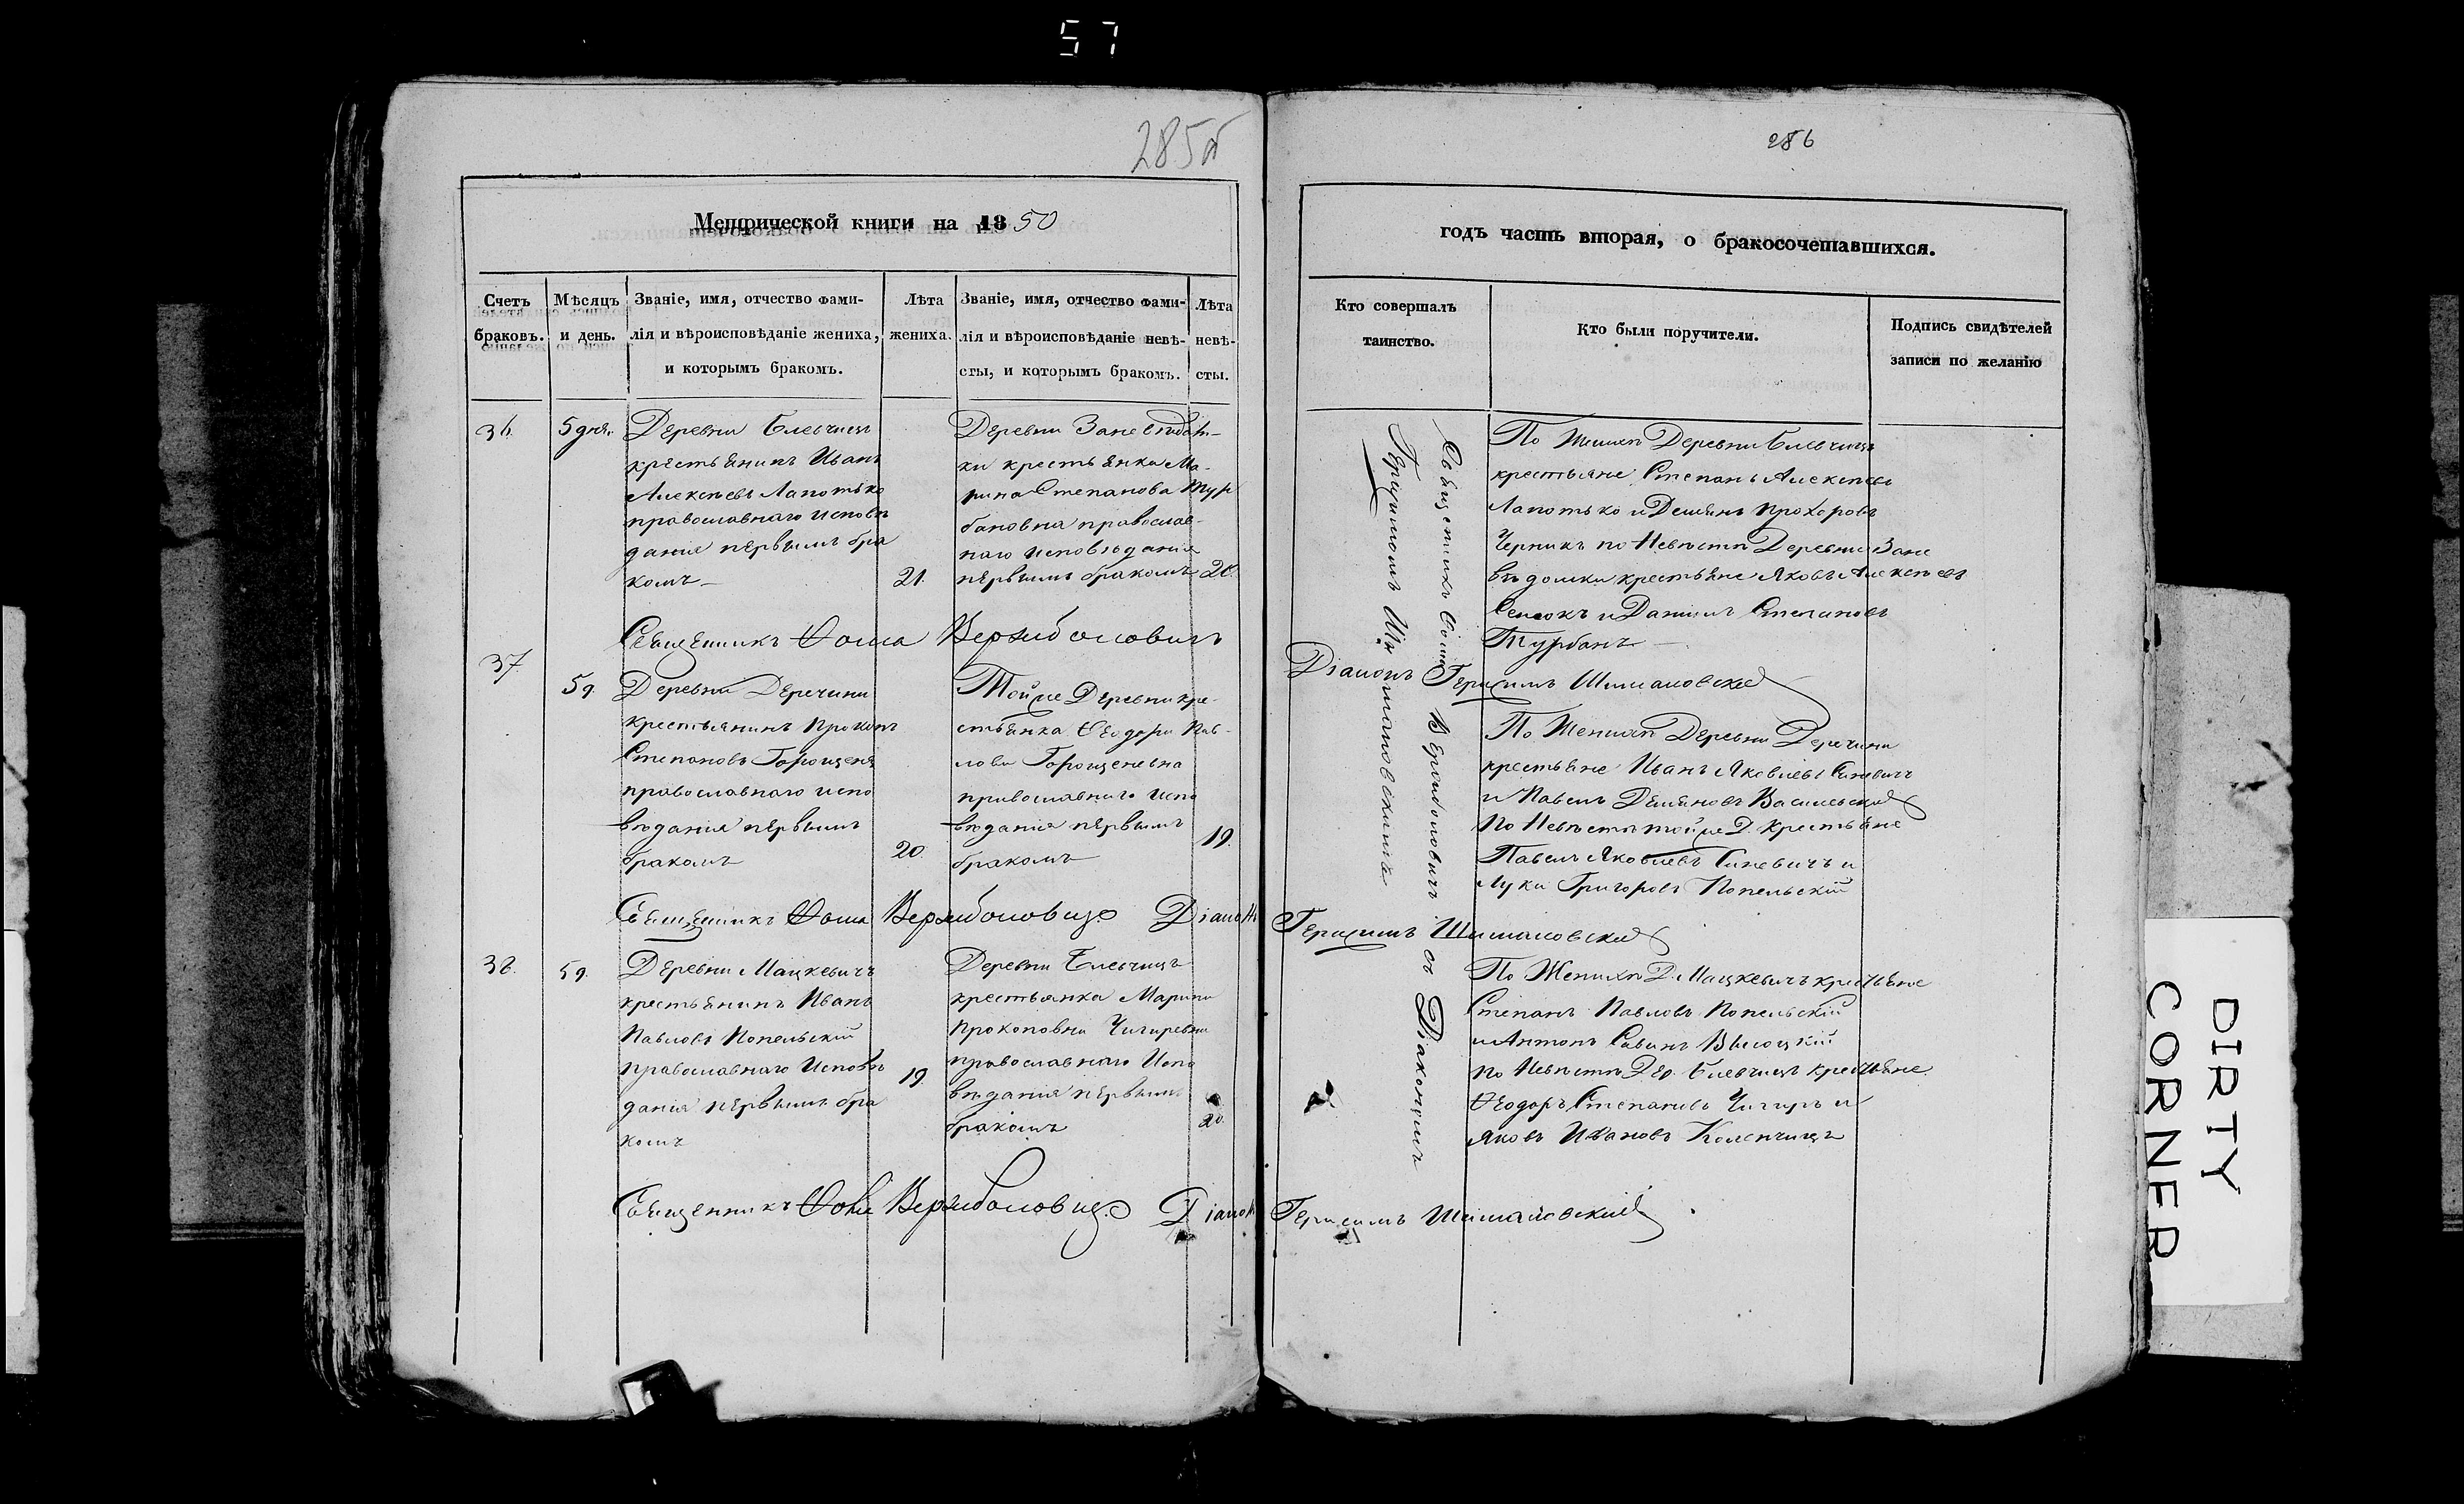 57
285б
286
Метрической книги на 1850
годъ часть вторая, о бракосочетавшихся.
Счетъ браковъ.
Мѣсяцъ и день.
Званіе, имя, отчество фами-
лія и вѣроисповѣданіе жениха,
и которымъ бракомъ.
Лѣта
жениха.
Званіе, имя, отчество фами-
лія и вѣроисповѣданіе невѣ-
сты, и которымъ бракомъ.
Лѣта
невѣ-
сты.
Кто совершалъ
таинство.
Кто были поручители.
Подпись свидѣтелей
записи по желанію
36.
5 дня.
Деревни Блевчицъ
крестьянинъ Иванъ
Алексѣевъ Лапотько
православнаго исповѣ
данія первымъ бра
комъ
21.
Деревни
ки крестьянка Ма-
рина Степанова Тур
бановна православ-
наго исповѣданія
первымъ бракомъ
Священникъ Ѳома Вержболовичъ
Діаконъ Герасимъ Шимановскій
По Женихѣ Деревни Блевчицъ
крестьяне Степанъ Алексѣевъ
Лапотько и Демьянъ Прохоровъ
Черникъ по Невѣстѣ Деревни Зане
вѣдомки крестьяне Яковъ Алексѣевъ
и Даніилъ Степановъ
Турбанъ
Священникъ Ѳома Вержболовичъ съ Діакономъ
Герасимомъ Шимановскимъ
37.
5 д.
Деревни Деречини
крестьянинъ
Степановъ Горощеня
православнаго испо
вѣданія первымъ
бракомъ
20.
Той же Деревни кре-
стьянка Ѳеодора Пав-
лова Горощеневна
православнаго испо
вѣданія первымъ
бракомъ
19.
По Женихѣ Деревни Деречини
крестьяне Иванъ Яковлевъ Синевичъ
и Павелъ Демьяновъ Василевскій
По Невѣстѣ той же Д. крестьяне
Павелъ Яковлевъ Синевичъ и
Лука Григоровъ Попельскій
Священникъ Ѳома Вержболовичъ Діаконъ Герасимъ Шимановскій
38.
5 д.
Деревни Мацкевичъ
крестьянинъ Иванъ
Павловъ Попельскій
православнаго исповѣ
данія первымъ бра
комъ
19.
Деревни Блевчицъ
крестьянка Марина
Прокоповна Чигиревна
православнаго Испо
вѣданія первымъ
бракомъ
20.
По Женихѣ Д. Мацкевичъ крестьяне
Степанъ Павловъ Попельскій
и Антонъ Савинъ Высоцкій
по Невѣстѣ Дер. Блевчицъ крестьяне
Ѳеодоръ Степановъ Чигиръ и
Яковъ Ивановъ Коленчицъ
Священникъ Ѳома Вержболовичъ Діаконъ Герасимъ Шимановскій
DIRTY
CORNER